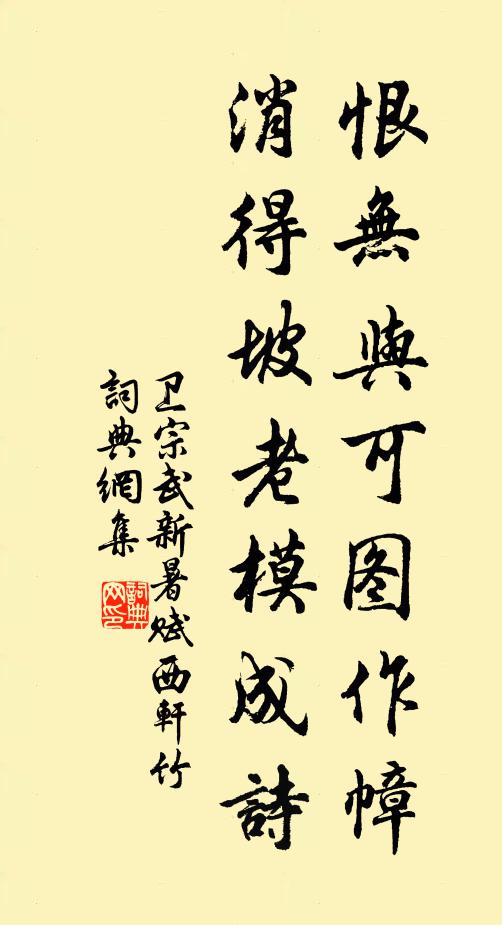 恨無與可图作幛
消得坡老模成詩
卫宗武新暑赋西軒竹
詞典網集
詞典网印